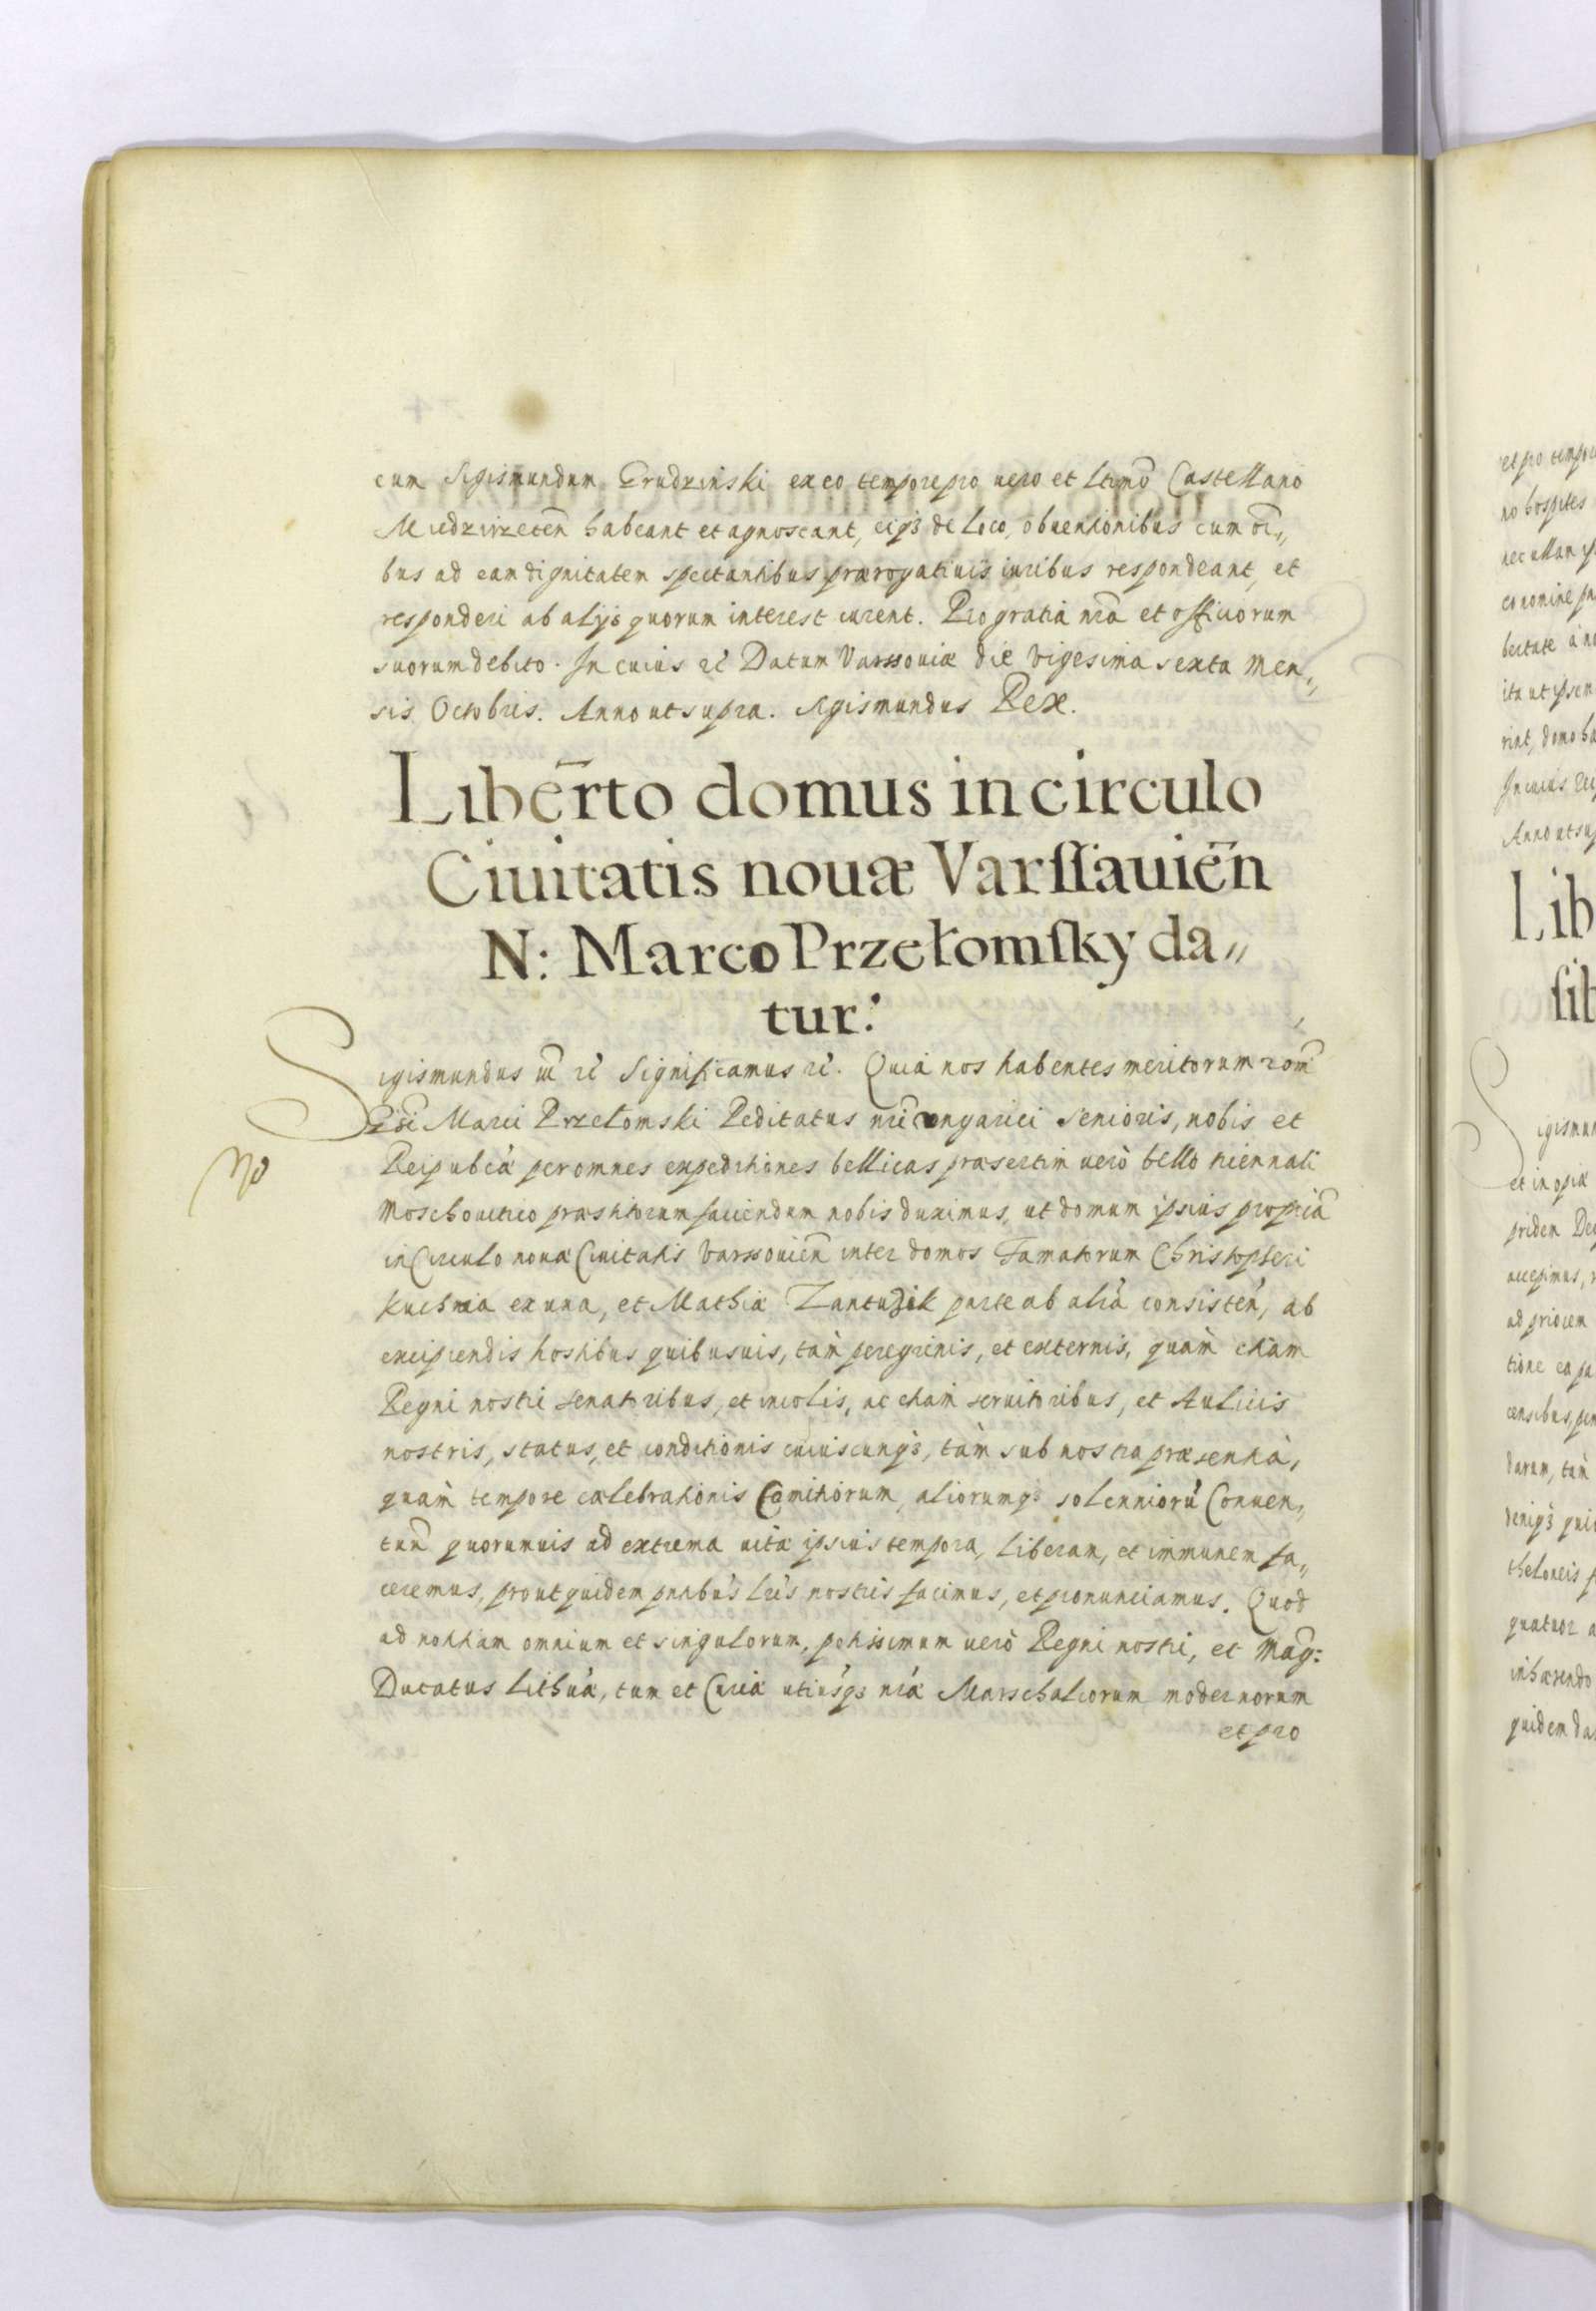 cum Sigismundum Grudzinski ex eo tempore pro uero et ltimo Castellano
Miedzirzeten̄ habeant et agnoscant, eiqꝫ de loco, obuentionibus cum oī„
bus ad eam dignitatem spectantibus prærogatiuis iuribus respondeant, et
responderi ab alijs quorum interest curent. Pro gratia nrā et officiorum
suorum debito. In cuius rei Datum Varssouiæ die vigesima sexta men„
sis Octobris. Anno ut supra. Sigismundus Rex.
Libēr̄to domus in circulo
Ciuitatis nouæ Varſſauien̄
N: Marco Przełomſky da„
tur:
Sigismundus Significamus Quia nos habentes meritorum
Marci Przełomski Peditatus nrī Vngarici senioris, nobis et
Reipubcæ per omnes expeditiones bellicas præsertim uerò bello triennali
Moschouitico præstitorum faciendum nobis duximus, ut domum ipsius propriā
in Circulo nouæ Ciuitatis Varssouien̄ inter domos Famatorum Christopheri
ex una, et Mathiæ parte ab aliá consisten̄, ab
excipiendis hostibus quibusuis, tàm peregrinis, et externis, quàm etiam
Regni nostri senatoribus, et incolis, ac etiam seruitoribus, et Aulicis
nostris, status, et conditionis cuiuscunqꝫ, tàm sub nostra præsentià,
quàm tempore cælebrationis Comitiorum, aliorumqꝫ solenniorū Conuen„
tuū quorumuis ad extrema uitæ ipsius tempora, liberam, et immunem fa„
ceremus, prout quidem pntibus lrīs nostris facimus, et pronunciamus. Quod
ad notitiam omnium et singulorum, potissimum uerò Regni nostri, et Mag:
Ducatus Lithuá, tum et Curiæ utriusqꝫ nrǽ Marschalcorum modernorum
et pro